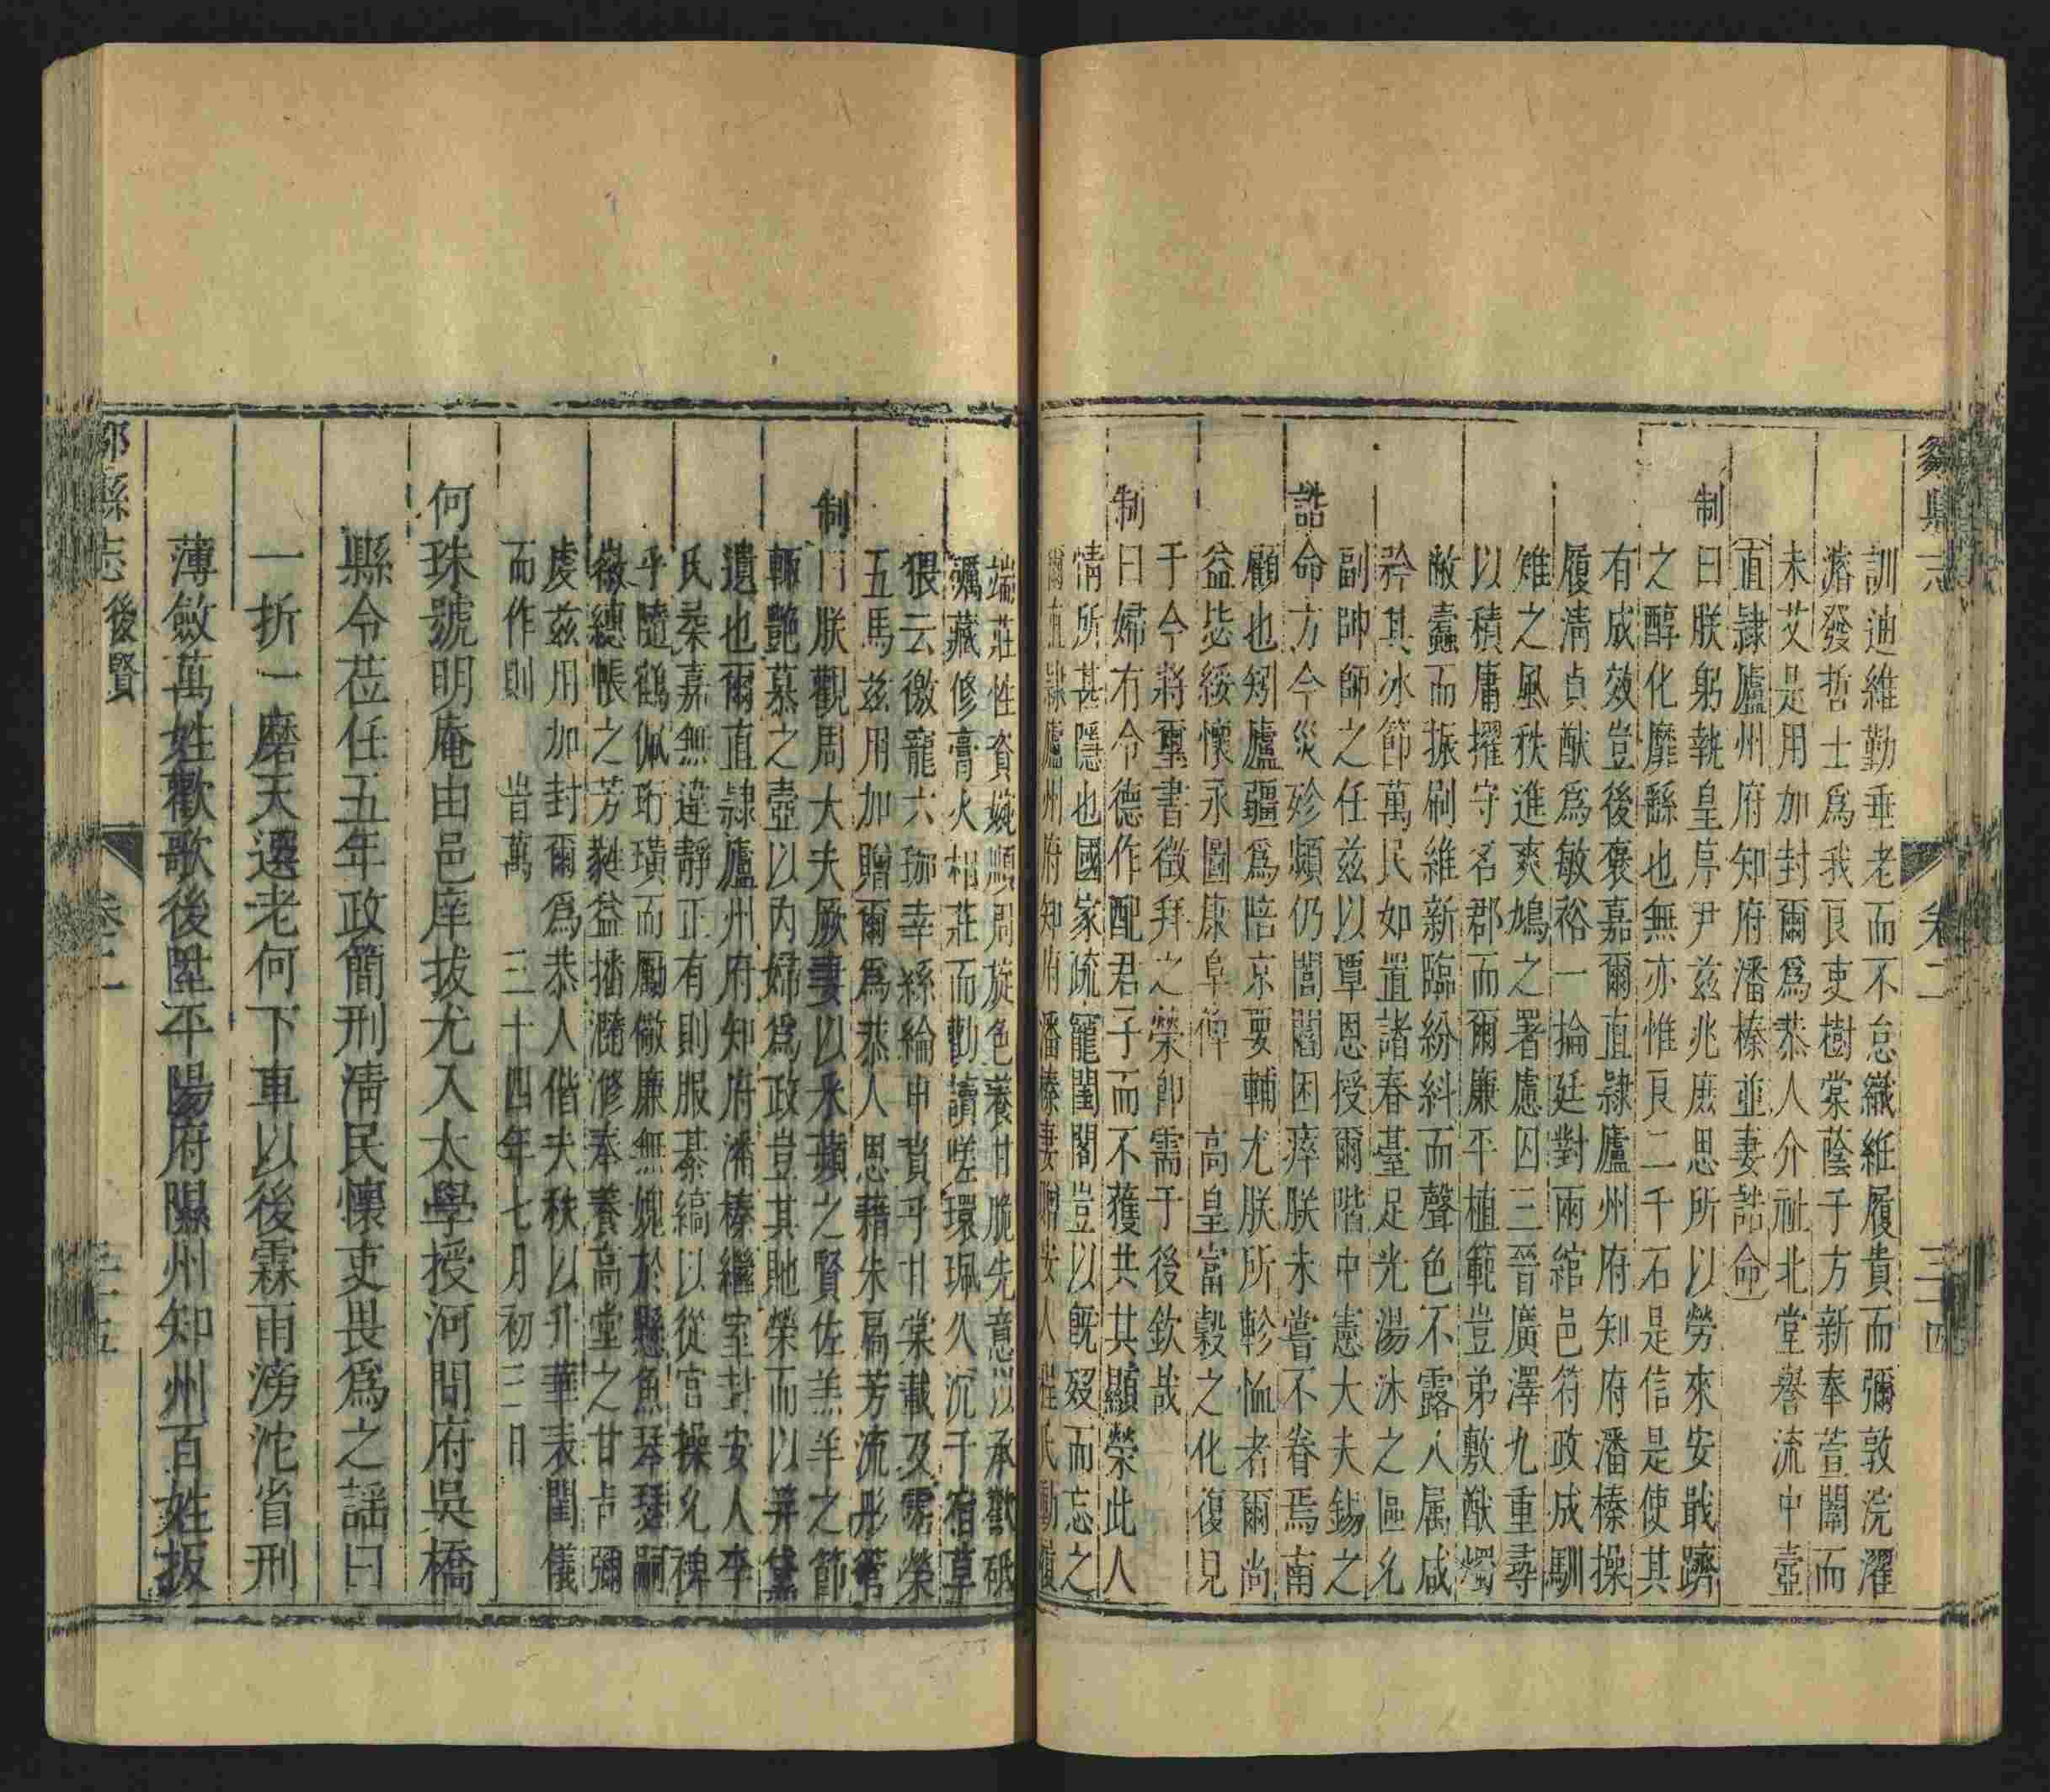 鄒縣志 卷二 三十四
訓迪維勤垂老而不怠織絍履貴而彌敦浣濯
瀡發哲士爲我良吏樹棠蔭于方新奉萱闈而
未艾是用加封爾爲恭人介祉北堂譽流中壼
直隷廬州府知府潘榛並妻誥命
制
曰朕躬執皇㫖尹兹兆庶思所以勞來安戢躋
之醇化靡繇也無亦惟良二千石是信是使其
有成效豈後褒嘉爾直隷廬州府知府潘榛操
履淸貞猷爲敏裕一掄廷對兩綰邑符政成馴
雉之風秩進爽鳩之署慮囚三晉廣澤九重尋
以積庸擢守名郡而爾廉平植範豈弟敷猷燭
敝蠹而振刷維新臨紛糾而聲色不露人属咸
矜其冰節萬民如置諸春臺足光湯沐之區允
副帥師之任兹以覃恩授爾階中憲大夫錫之
誥
命方今災殄頻仍閭閻困瘁朕未嘗不眷焉南
顧也矧廬疆爲陪京要輔尤朕所軫恤者爾尚
益毖綏懷永圖康阜俾 高皇富穀之化復見
于今將璽書徵拜之榮卽需于後欽哉
制
曰婦有令德作配君子而不獲共其顯榮此人
情所甚隱也國家疏寵閨閤豈以旣歿而忘之
爾直隷廬州府知府潘榛妻贈安人程氏動愼
端莊性資婉順周旋色養甘脆先意以承歡砥
礪藏修膏火相莊而勸讀嗟環珮久沉于宿草
猥云徼寵六珈幸絲綸申賁乎甘棠載及霈榮
五馬兹用加贈爾爲恭人恩藉朱扃芳流彤管
制
曰朕觀周大夫厥妻以釆蘋之賢佐羔羊之節
輒艷慕之壼以内婦爲政豈其貤榮而以弄黛
遺也爾直隷廬州府知府潘榛繼室封安人李
氏葇嘉無違靜正有則服綦縞以從宫操允裨
乎隨鶴佩珩璜而勵儆廉無媿於懸魚琴瑟嗣
徽繐帳之芳蕤益播瀡滫奉養高堂之甘㫖彌
虔兹用加封爾爲恭人偕夫秩以升華表閨儀
而作則 旹萬 三十四年七月初三日
何珠號明庵由邑庠拔尤入太學授河間府吳橋
縣令莅任五年政簡刑淸民懷吏畏爲之謡曰
一折一磨天遷老何下車以後霖雨滂沱省刑
薄斂萬姓歡歌後陞平陽府隰州知州百姓扳
鄒縣志 後賢 卷二 三十五